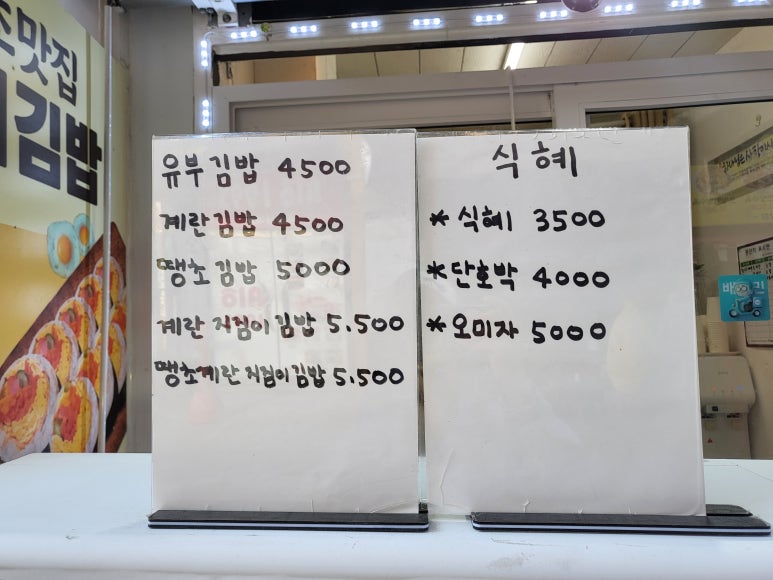 맛집
김밥
유부김밥 4500
계란김밥 4500
땡초김밥 5000
계란지짐이김밥 5.500
땡초계란지짐이김밥 5.500
식혜
*식혜 3500
*단호박 4000
*오미자 5000